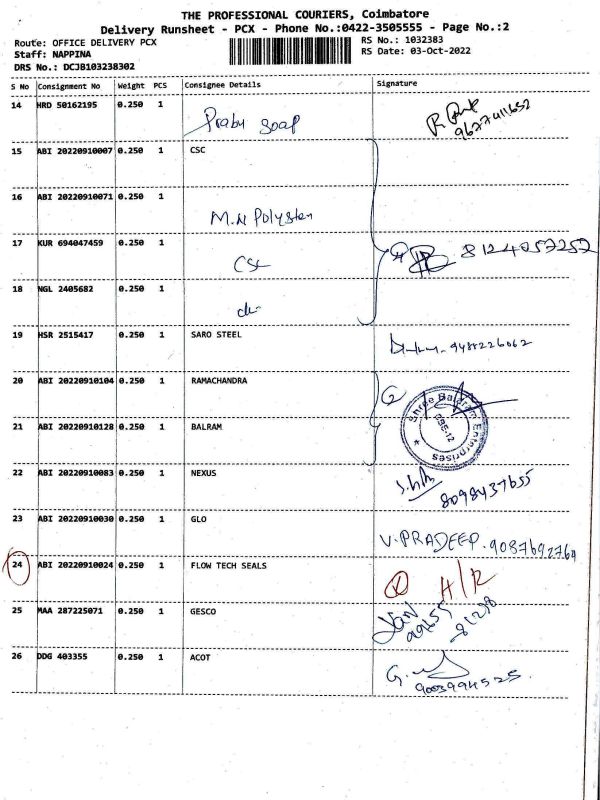 THE PROFESSIONAL COURIERS, Coimbatore
Delivery Runsheet - PCX - Phone No.:0422-3505555 - Page No.:2
Route: OFFICE DELIVERY PCX
RS No.: 1032383
Staff: NAPPINA
RS Date: 03-Oct-2022
DRS No.: DCJB103238302
S No Consignment No Weight PCS Consignee Details Signature
14 HRD 50162195 0.250 1 Prabu Soap 9677411652
15 ABI 20220910007 0.250 1 CSC
16 ABI 20220910071 0.250 1 M.N Polysten
17 KUR 694047459 0.250 1 CSC 8124057257
18 NGL 2405682 0.250 1
19 HSR 2515417 0.250 1 SARO STEEL 9488226062
20 ABI 20220910104 0.250 1 RAMACHANDRA
Shree Balaram Enterprises
21 ABI 20220910128 0.250 1 BALRAM
22 ABI 20220910083 0.250 1 NEXUS 8098437655
23 ABI 20220910030 0.250 1 GLO V.PRADEEP. 9087692769
24 ABI 20220910024 0.250 1 FLOW TECH SEALS
25 MAA 287225071 0.250 1 GESCO 99655 81278
26 DDG 403355 0.250 1 ACOT 9003994525